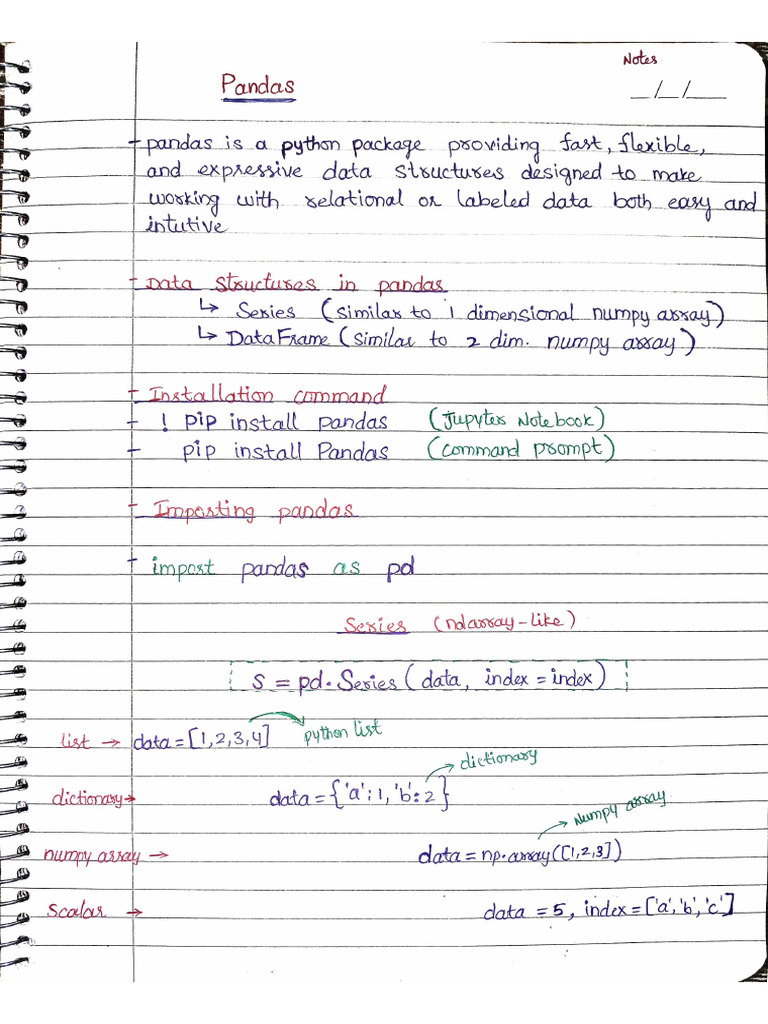 Notes
Pandas
_/_/__
- pandas is a python package providing fast, flexible,
and expressive data structures designed to make
working with relational or labeled data both easy and
intutive
- Data structures in pandas
↳ Series (similar to 1 dimensional numpy array)
↳ DataFrame (similar to 2 dim. numpy array)
- Installation command
- ! pip install pandas (Jupyter Notebook)
- pip install Pandas (command prompt)
- Importing pandas
- import pandas as pd
Series (ndarray-like)
S = pd.Series(data, index = index)
list → data = [1,2,3,4] python list
dictionary
dictionary → data = {'a':1, 'b':2}
Numpy array
numpy array → data = np.array([1,2,3])
Scalar → data = 5, index = ['a','b','c']